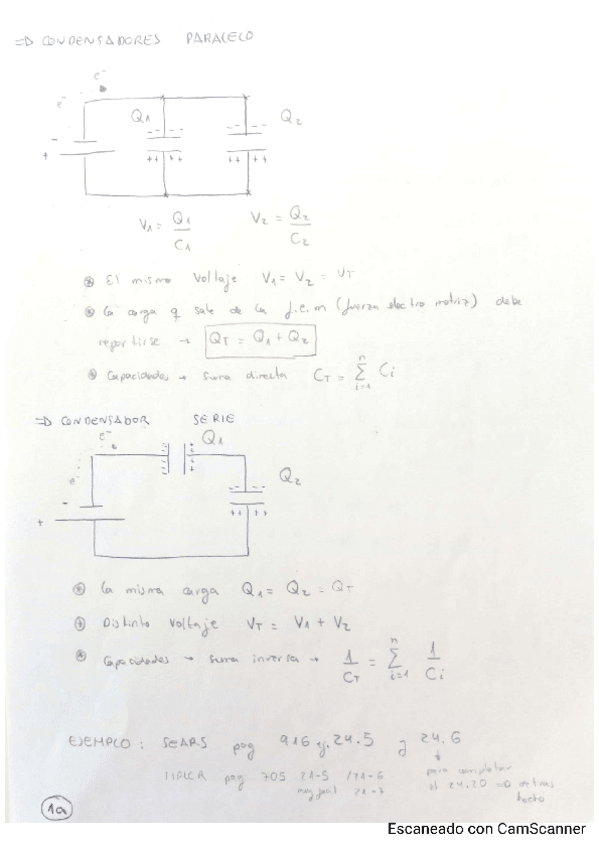 ⇒ CONDENSADORES PARALELO
e⁻
e⁻
Q1
Q2
-
+
V1 = Q1/C1 V2 = Q2/C2
⊛ El mismo voltaje V1 = V2 = VT
⊛ La carga q sale de la f.e.m (fuerza electro motriz) debe
repartirse → QT = Q1 + Q2
⊛ Capacidades → suma directa CT = Σ(i=1, n) Ci
⇒ CONDENSADOR SERIE
e⁻
Q1
e⁻
Q2
-
+
⊛ La misma carga Q1 = Q2 = QT
⊛ Distinto voltaje VT = V1 + V2
⊛ Capacidades → suma inversa → 1/CT = Σ(i=1, n) 1/Ci
EJEMPLO: SEARS pag 916 ej. 24.5 y 24.6
TIPLER pag 705 21-5 /21-6
para completar
muy fácil 21-7
el 24,20
hecho
1a
Escaneado con CamScanner